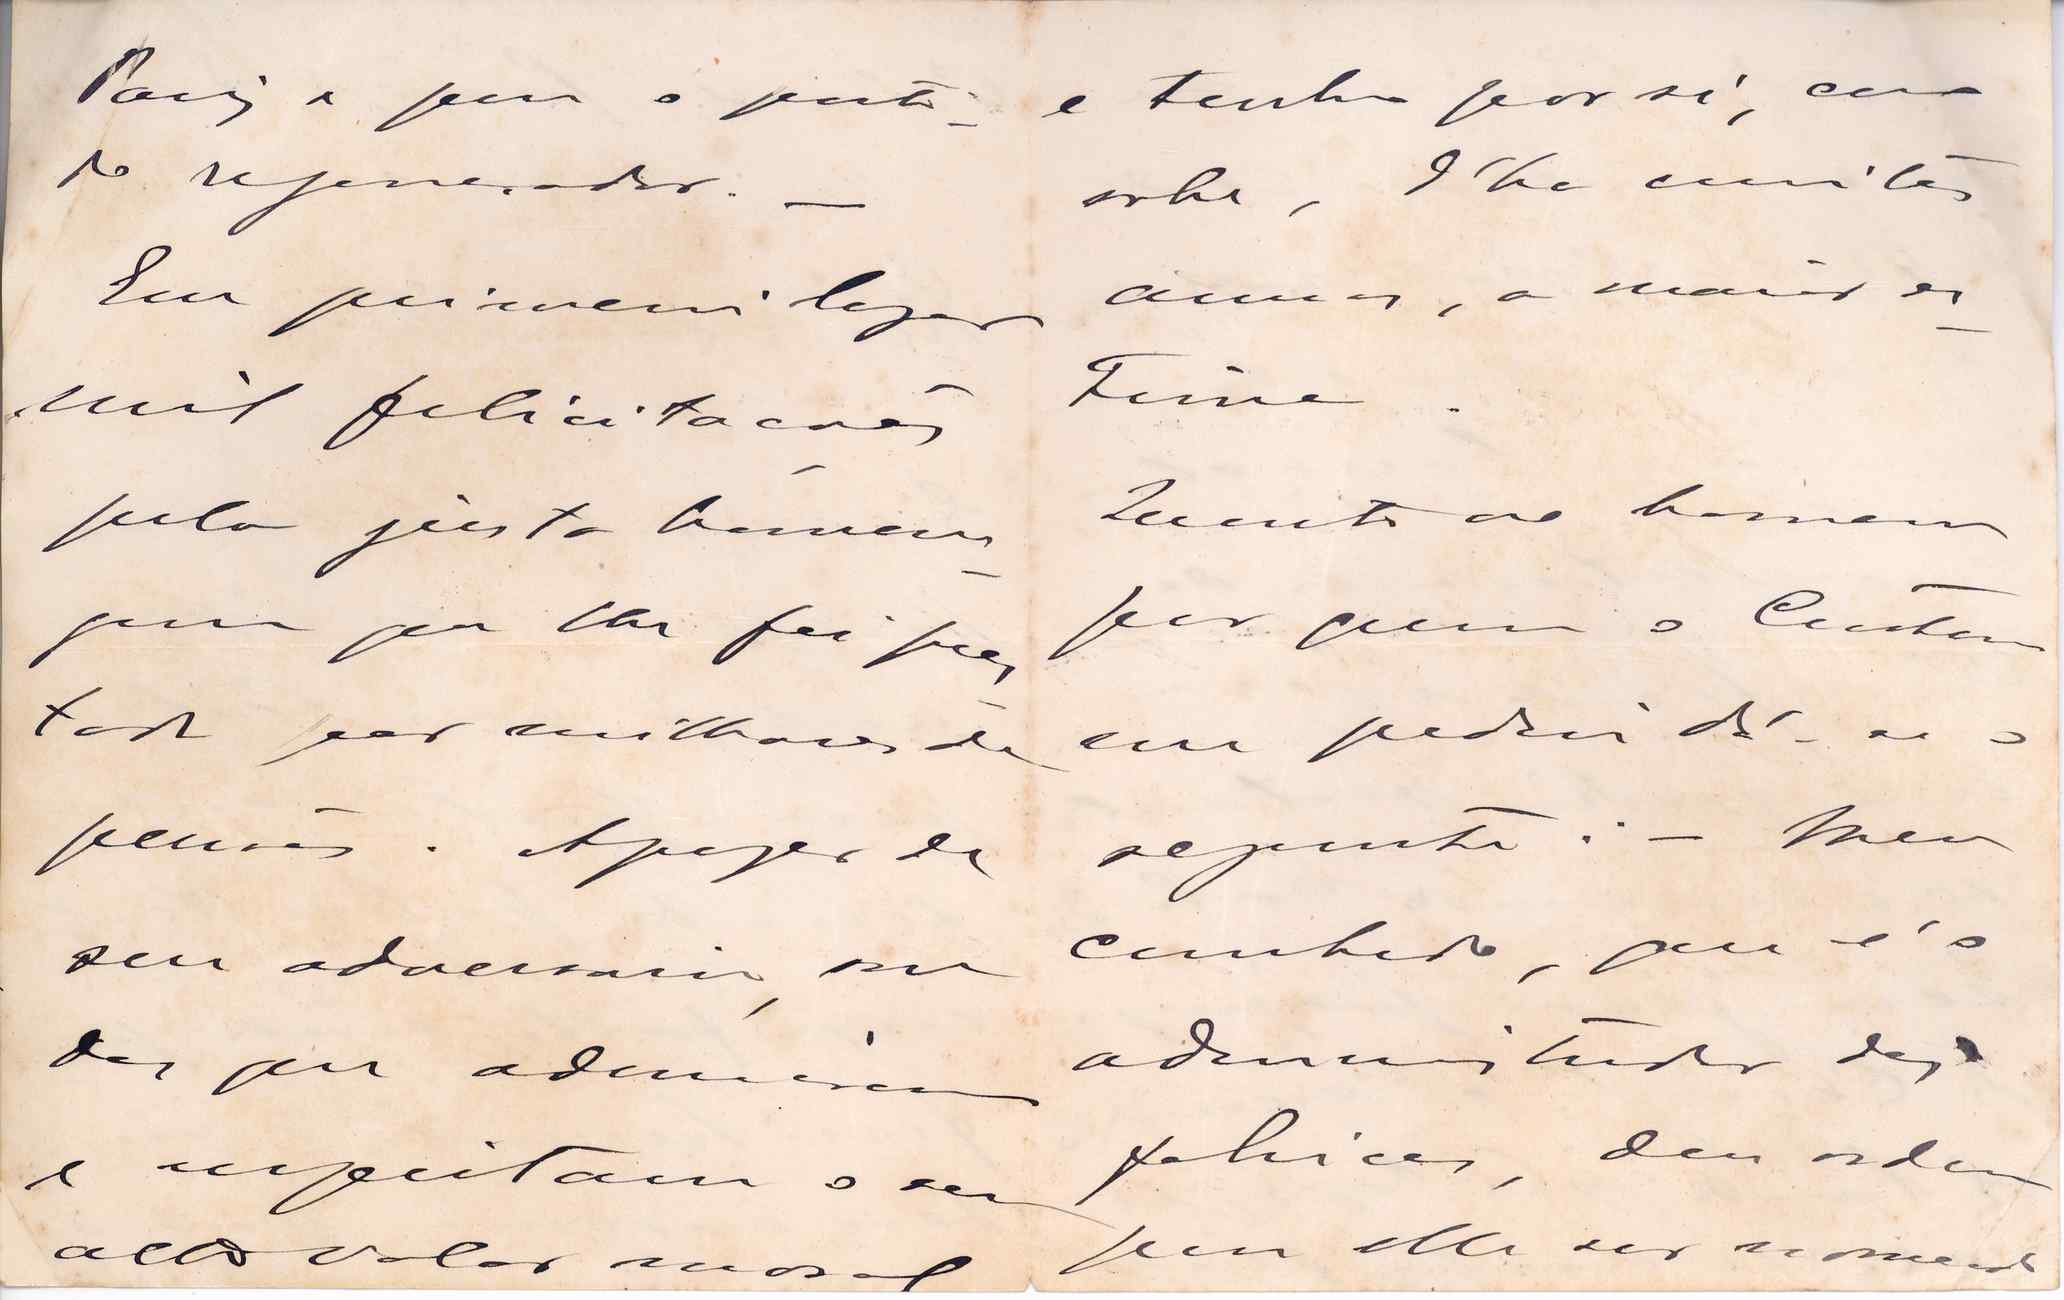 Paiz e para o parti-
do regenerador. —
Em primeiro logar
mil felicitações
pela justa homena-
gem que lhe foi pres-
tada por milhares de
pessoas. Apezar de
seu adversario, sou
dos que admiram
e respeitam o seu
alto valor moral
e tenho por si, como
sabe, d'ha muitos
annos, a maior es-
tima.
Quanto ao homem
por quem o Custom
me pediu dá-se o
seguinte: — Meu
cunhado, que é o
administrador das
fabricas, deu ordem
para elle ser nomeado